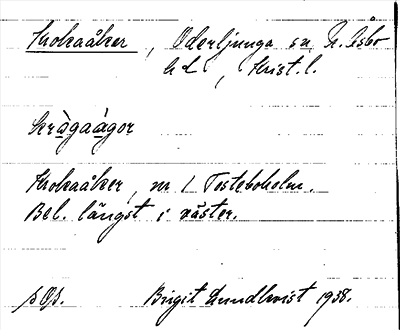 Krokaåker, Oderljunga sn, N. Åsbo
hd, Krist. l.
krògaágor
Krokaåker, nr 1 Tosteboholm.
Bel. längst i väster.
Birgit Lundkvist 1938.